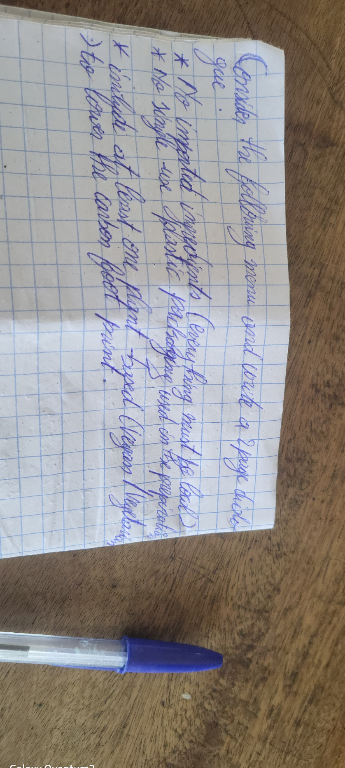 Consider the following menu and write a 2 page dialo
gue.
* No imported ingredients (everything must be local)
* No single use plastic packaging used in the preparation
* include at least one plant based (Vegan / Vegetarian
to lower the carbon foot print.
Galaxy Quantum2